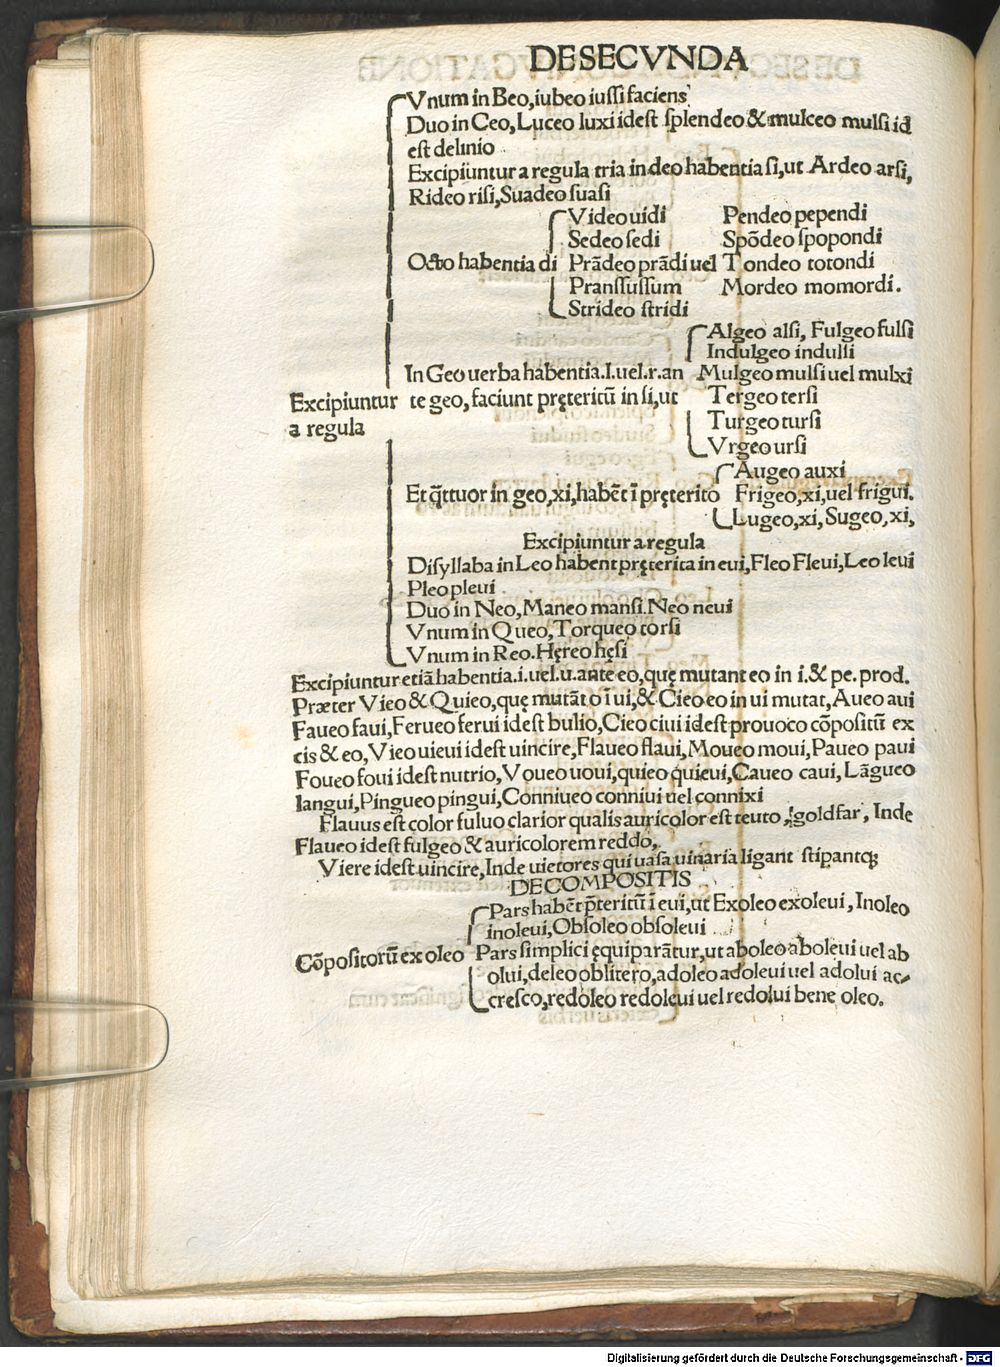 DE SECVNDA
Vnum in Beo, iubeo iussi faciens
Duo in Ceo, Luceo luxi idest splendeo & mulceo mulsi id
est delinio
Excipiuntur a regula tria in deo habentia si, ut Ardeo arsi,
Rideo risi, Suadeo suasi
Video uidi Pendeo pependi
Sedeo sedi Spōdeo spopondi
Octo habentia di Prādeo prādi uel Tondeo totondi
Pranssussum Mordeo momordi.
Strideo stridi
Algeo alsi, Fulgeo fulsi
Indulgeo indulsi
In Geo uerba habentia .l. uel .r. an Mulgeo mulsi uel mulxi
Excipiuntur te geo, faciunt pręteritū in si, ut Tergeo tersi
a regula Turgeo tursi
Vrgeo ursi
Augeo auxi
Et q̄ttuor in geo, xi, habēt ī pręterito Frigeo, xi, uel frigui.
Lugeo, xi, Sugeo, xi,
Excipiuntur a regula
Disyllaba in Leo habent pręterita in eui, Fleo Fleui, Leo leui
Pleo pleui
Duo in Neo, Maneo mansi. Neo neui
Vnum in Queo, Torqueo torsi
Vnum in Reo. Hęreo hęsi
Excipiuntur etiā habentia .i. uel .u. ante eo, quę mutant eo in i. & pe. prod.
Præter Vieo & Quieo, quę mutāt o ī ui, & Cieo eo in ui mutat, Aueo aui
Faueo faui, Ferueo ferui idest bulio, Cieo ciui idest prouoco cōpositū ex
cis & eo, Vieo uieui idest uincire, Flaueo flaui, Moueo moui, Paueo paui
Foueo foui idest nutrio, Voueo uoui, quieo quieui, Caueo caui, Lāgueo
langui, Pingueo pingui, Conniueo conniui uel connixi
Flauus est color fuluo clarior qualis auricolor est teuto, goldfar, Inde
Flaueo idest fulgeo & auricolorem reddo,
Viere idest uincire, Inde uietores qui uasa uinaria ligant stipantq;
DE COMPOSITIS
Pars habēt p̄teritū ī eui, ut Exoleo exoleui, Inoleo
inoleui, Obsoleo obsoleui
Cōpositorū ex oleo Pars simplici ęquiparātur, ut aboleo aboleui uel ab
olui, deleo oblitero, adoleo adoleui uel adolui ac-
cresco, redoleo redoleui uel redolui bene oleo.
Digitalisierung gefördert durch die Deutsche Forschungsgemeinschaft - DFG